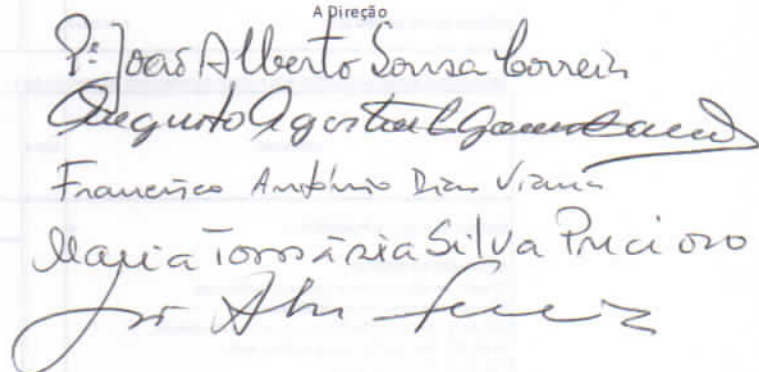 A Direção
P.e João Alberto Sousa Correia
Augusto Agostinho
Francisco António Dias Viana
Maria Tomásia Silva Precioso